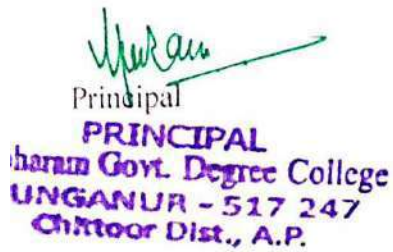 Principal
PRINCIPAL
haram Govt. Degree College
UNGANUR - 517 247
Chittoor Dist., A.P.